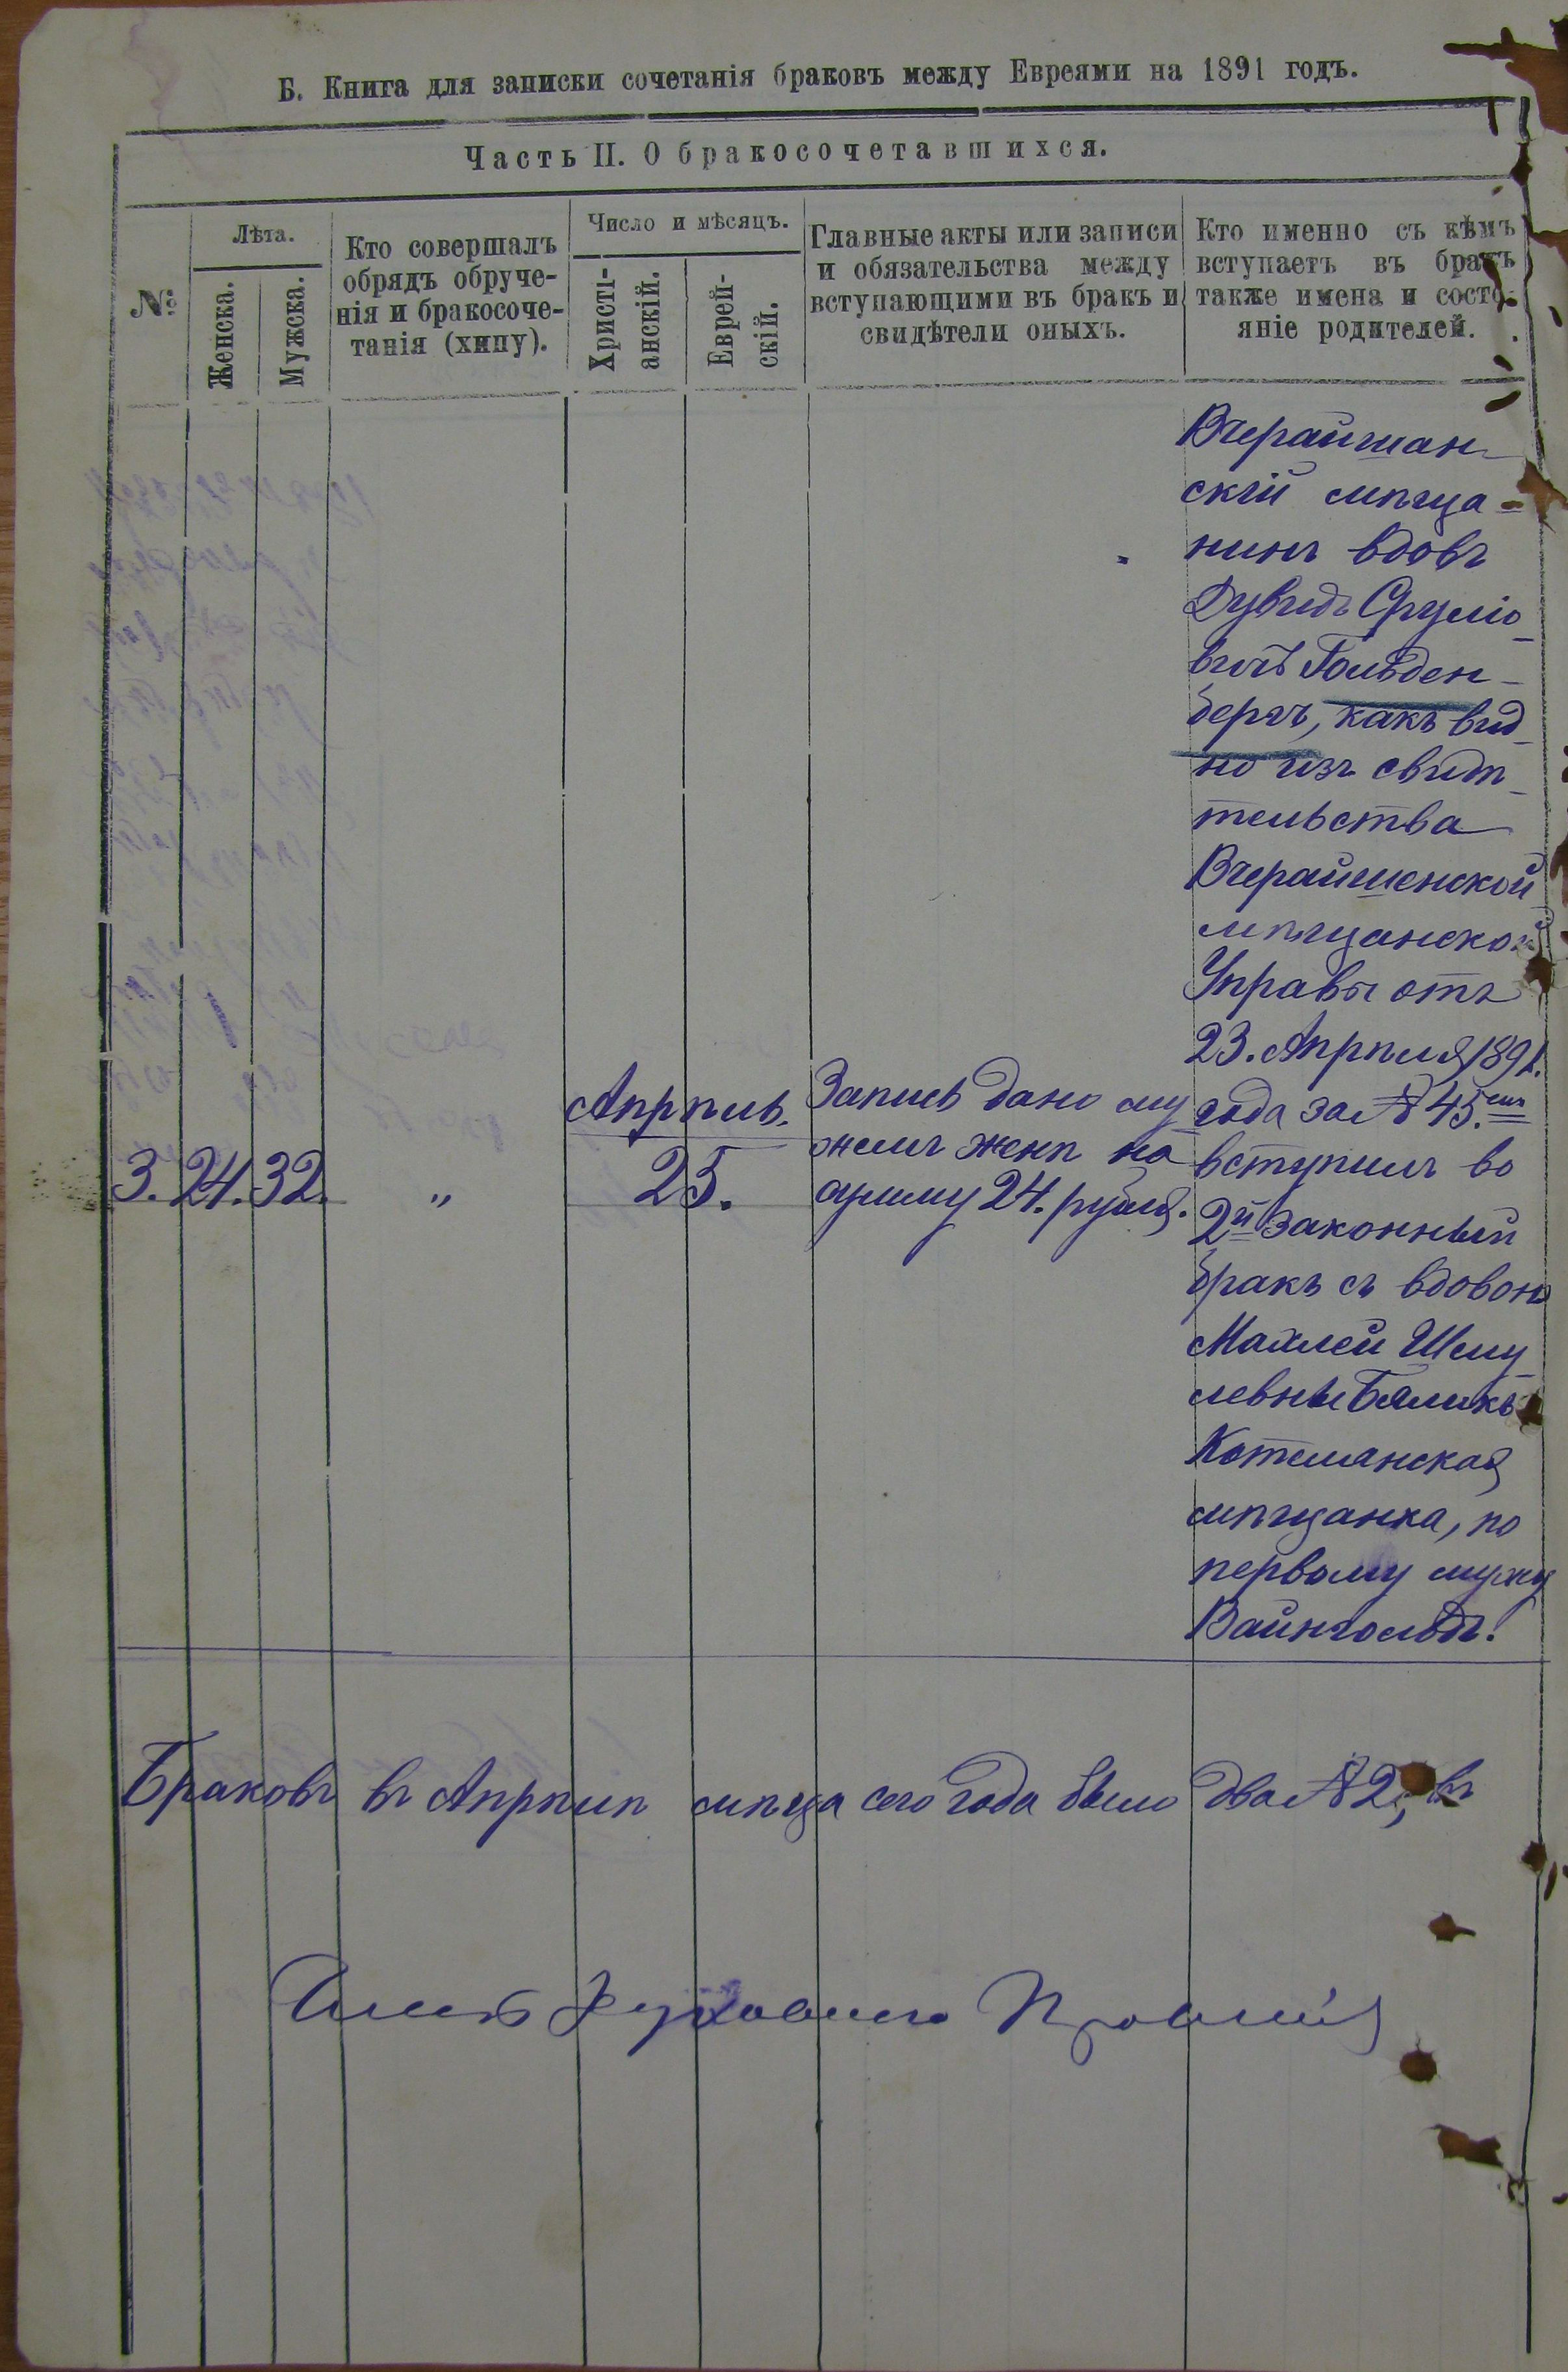 Б. Книга для записки сочетанія браковъ между Евреями на 1891 годъ.
Часть II. О бракосочетавшихся.
№
Лѣта.
Женска.
Мужска.
Кто совершалъ
обрядъ обруче-
нія и бракосоче-
танія (хипу).
Число и мѣсяцъ.
Христі-
анскій.
Еврей-
скій.
Главные акты или записи
и обязательства между
вступающими въ бракъ и
свидѣтели оныхъ.
Кто именно съ кѣмъ
вступаетъ въ бракъ
также имена и состо-
яніе родителей.
3. 24. 32.
"
Апрѣль.
25.
Запись дано му
жемъ женѣ на
сумму 24. рубля.
Вчерайшан-
скій мѣща-
нинъ вдовъ
Дувидъ Сруліо-
вичъ Гольден-
бергъ, какъ вид-
но изъ свидѣ-
тельства
Вчерайшенской
мѣщанской
Управы отъ
23. Апрѣля 1891.
года за № 45.
вступилъ во
2й законный
бракъ съ вдовою
Махлей Шму-
левны Бяликъ
Котелянская
мѣщанка, по
первому мужу
Вайнгольдъ.
Браковъ въ Апрѣлѣ мѣ-ца сего года было два № 2, въ
Членъ Духовнаго Правленія